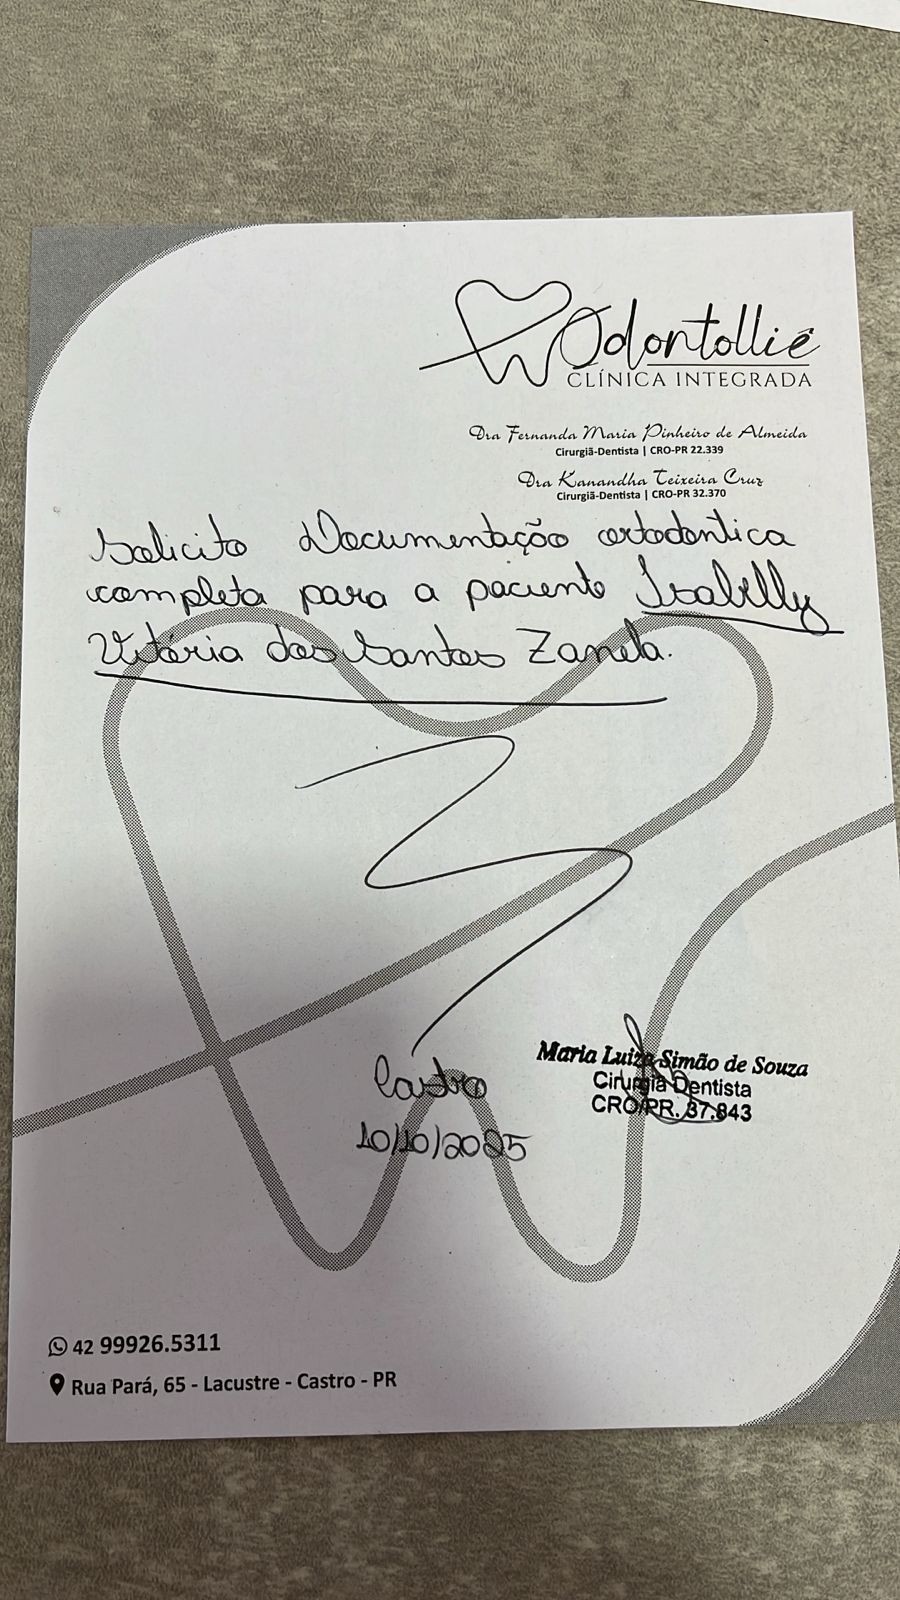 Odontolliê
CLÍNICA INTEGRADA
Dra Fernanda Maria Pinheiro de Almeida
Cirurgiã-Dentista | CRO-PR 22.339
Dra Kanandha Teixeira Cruz
Cirurgiã-Dentista | CRO-PR 32.370
Solicito Documentação ortodontica
completa para a paciente Isabelly
Vitória dos Santos Zanela.
Castro
10/10/2025
Maria Luiza Simão de Souza
Cirurgiã Dentista
CRO/PR. 37.843
42 99926.5311
Rua Pará, 65 - Lacustre - Castro - PR